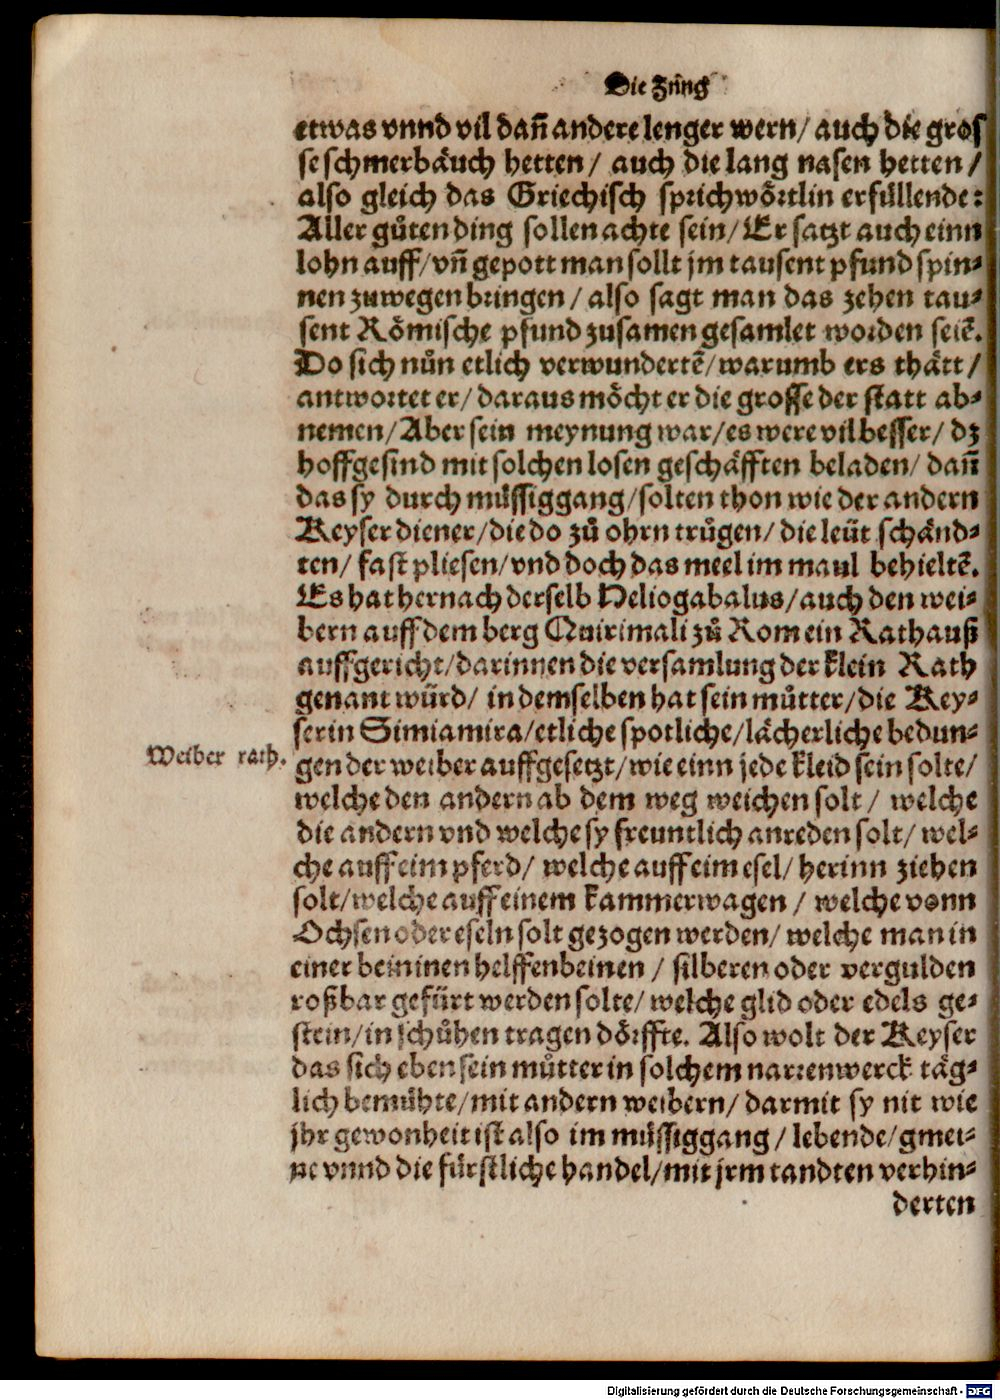 Die Zūng
etwas vnnd vil dañ andere lenger wern/ auch die gros
se schmerbäuch hetten/ auch die lang nasen hetten/
also gleich das Griechisch sprichwörtlin erfüllende:
Aller gůten ding sollen achte sein/ Er satzt auch einn
lohn auff/ vñ gepott man sollt jm tausent pfund spin-
nen zuwegen bringen/ also sagt man das zehen tau-
sent Römische pfund zusamen gesamlet worden seiẽ.
Do sich nůn etlich verwundertẽ/ warumb ers thätt/
antwortet er/ daraus möcht er die grosse der statt ab-
nemen/ Aber sein meynung war/ es were vil besser/ dz
hoffgesind mit solchen losen geschäfften beladen/ dañ
das sy durch müssiggang/ solten thon wie der andern
Keyser diener/ die do zů ohrn trůgen/ die leüt schänd-
ten/ fast pliesen/ vnd doch das meel im maul behieltẽ.
Es hat hernach derselb Heliogabalus/ auch den wei-
bern auff dem berg Quirimali zů Rom ein Rathauß
auffgericht/ darinnen die versamlung der klein Rath
genant würd/ in demselben hat sein můtter/ die Key-
serin Simiamira/ etliche spotliche/ lächerliche bedun-
Weiber rath.
gen der weiber auffgesetzt/ wie einn jede kleid sein solte/
welche den andern ab dem weg weichen solt/ welche
die andern vnd welche sy freuntlich anreden solt/ wel-
che auff eim pferd/ welche auff eim esel/ herinn ziehen
solt/ welche auff einem kammerwagen/ welche vonn
Ochsen oder eseln solt gezogen werden/ welche man in
einer beininen helffenbeinen/ silberen oder vergulden
roßbar gefürt werden solte/ welche glid oder edels ge-
stein/ in schůhen tragen dörffte. Also wolt der Keyser
das sich eben sein můtter in solchem narrenwerck täg-
lich bemühte/ mit andern weibern/ darmit sy nit wie
jhr gewonheit ist also im müssiggang/ lebende/ gmei-
ne vnnd die fürstliche handel/ mit jrm tandten verhin-
derten
Digitalisierung gefördert durch die Deutsche Forschungsgemeinschaft - DFG